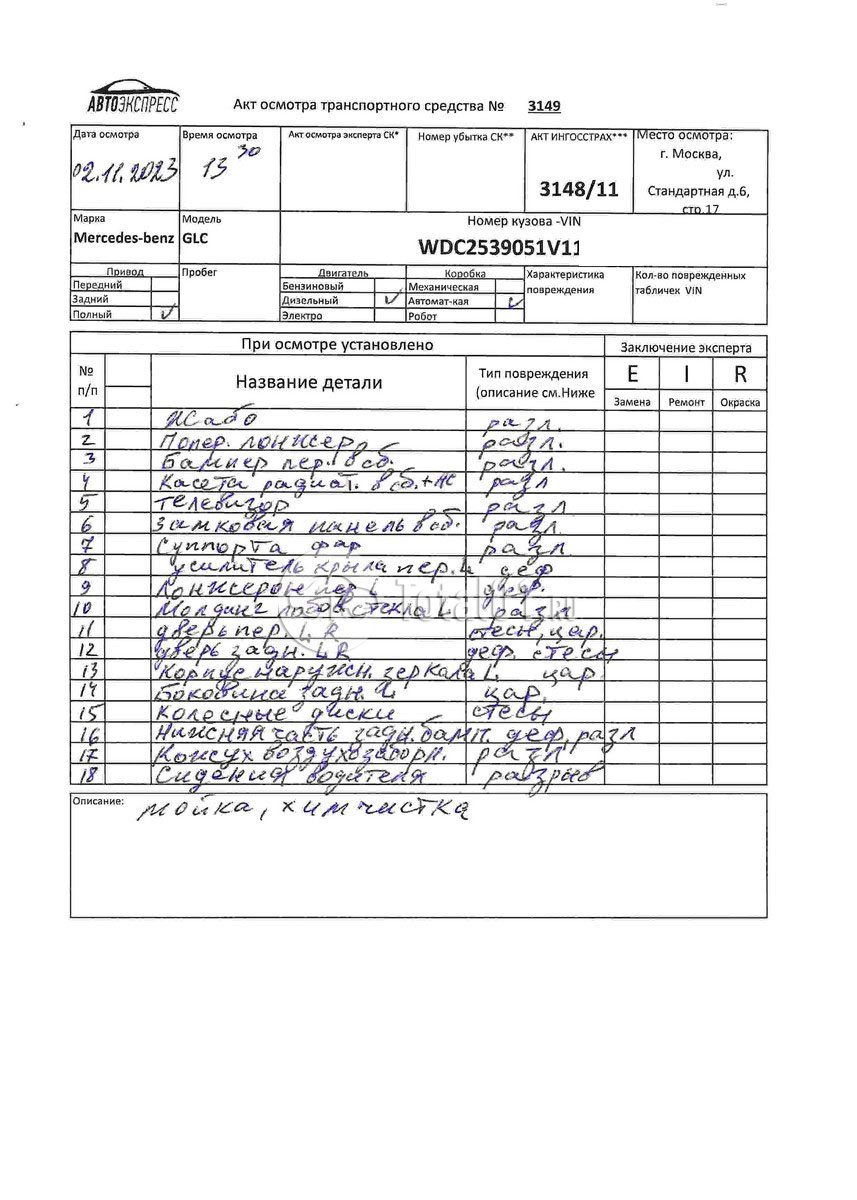 АВТОЭКСПРЕСС
Акт осмотра транспортного средства № 3149
Дата осмотра
02.11.2023
Время осмотра
13 30
Акт осмотра эксперта СК*
Номер убытка СК**
АКТ ИНГОССТРАХ***
3148/11
Место осмотра:
г. Москва,
ул.
Стандартная д.6,
стр.17
Марка
Mercedes-benz
Модель
GLC
Номер кузова -VIN
WDC2539051V11
Привод
Передний
Задний
Полный V
Пробег
Двигатель
Бензиновый
Дизельный V
Электро
Коробка
Механическая
Автомат-кая V
Робот
Характеристика
повреждения
Кол-во поврежденных
табличек VIN
При осмотре установлено
Заключение эксперта
№
п/п
Название детали
Тип повреждения
(описание см.Ниже
E I R
Замена Ремонт Окраска
1 Жабо разл.
2 Попер. лонжер разл.
3 Бампер пер. в сб. разл.
4 Касета радиат. в сб. + АС разл
5 Телевизор разл
6 Замковая панель в сб. разл.
7 Суппорта фар разл
8 усилитель крыла пер. L деф
9 Лонжерон пер L деф.
10 Молдинг лобов стекла L разл
11 дверь пер. L R стесы, цар.
12 дверь задн. L R деф. стесы
13 Корпус наружн. зеркала L цар.
14 Боковина задн. L цар.
15 Колесные диски стесы
16 Нижняя часть задн. бамп. деф, разл
17 Кожух воздухозаборн. разл
18 Сидения водителя разрыв
Описание: мойка, химчистка
Total01.ru